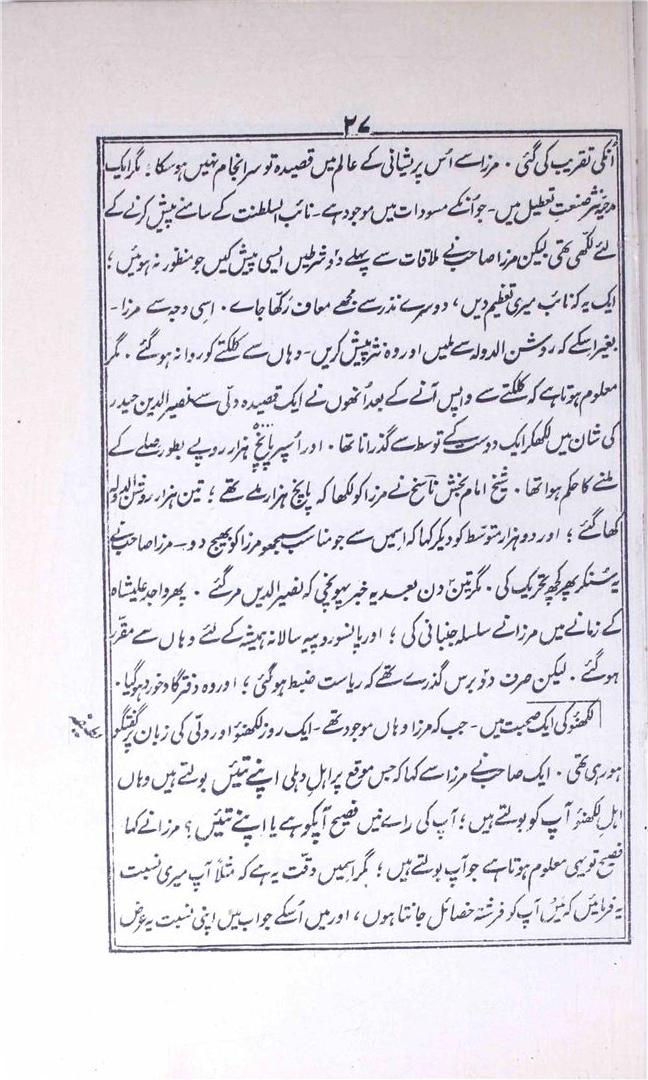 ۲۷
اُنکی تقریب کی گئی ۔ مرزا سے اُس پریشانی کے عالم میں قصیدہ تو سرانجام نہیں ہوسکا ۔ مگر ایک
مدحیہ نثر صنعتِ تعطیل میں ۔ جو اُنکے مسودات میں موجود ہے ۔ نائب السلطنت کے سامنے پیش کرنے کے
لئے لکھی تھی لیکن مرزا صاحب نے ملاقات سے پہلے دو شرطیں ایسی پیش کیں جو منظور نہ ہوئیں ؛
ایک یہ کہ نائب میری تعظیم دیں ، دوسرے نذر سے مجھے معاف رکھا جاے ۔ اسی وجہ سے مرزا ۔
بغیر اسکے کہ روشن الدولہ سے ملیں اور وہ نثر پیش کریں ۔ وہاں سے کلکتے کو روانہ ہوگئے ۔ مگر
معلوم ہوتا ہے کہ کلکتے سے واپس آنے کے بعد اُنھوں نے ایک قصیدہ دلّی سے نصیر الدین حیدر
کی شان میں لکھکر ایک دوست کے توسط سے گذرانا تھا ۔ اور اُسپر پانچ ہزار روپے بطور صلے کے
ملنے کا حکم ہوا تھا ۔ شیخ امام بخش ناسخ نے مرزا کو لکھا کہ پانچ ہزار ملے تھے ؛ تین ہزار روشن الدولہ
کھا گئے ؛ اور دو ہزار متوسّط کو دیکر کہا کہ اسمیں سے جو مناسب سمجھو مرزا کو بھیج دو ۔ مرزا صاحب نے
یہ سُنکر پھر کچھ تحریک کی ۔ مگر تین دن بعد یہ خبر پہونچی کہ نصیر الدیں مر گئے ۔ پھر واجد علیشاہ
کے زمانے میں مرزا نے سلسلہ جنبانی کی ؛ اور پانسو روپیہ سالانہ ہمیشہ کے لئے وہاں سے مقرّر
ہوگئے ۔ لیکن صرف دو برس گذرے تھے کہ ریاست ضبط ہوگئی ؛ اور وہ دفتر گاؤخورد ہوگیا ۔
لکھنؤ کی ایک صحبت میں ۔ جب کہ مرزا وہاں موجود تھے ۔ ایک روز لکھنؤ اور دلّی کی زبان پر گفتگو
ہورہی تھی ۔ ایک صاحب نے مرزا سے کہا کہ جس موقع پر اہلِ دہلی اپنے تئیں بولتے ہیں وہاں
اہلِ لکھنؤ آپ کو بولتے ہیں ؛ آپ کی راے میں فصیح آپکو ہے یا اپنے تئیں ؟ مرزا نے کہا
فصیح تو یہی معلوم ہوتا ہے جو آپ بولتے ہیں ؛ مگر اسمیں دقّت یہ ہے کہ مثلاً آپ میری نسبت
یہ فرمائیں کہ میں آپ کو فرشتہ خصائل جانتا ہوں ، اور میں اُسکے جواب میں اپنی نسبت یہ عرض